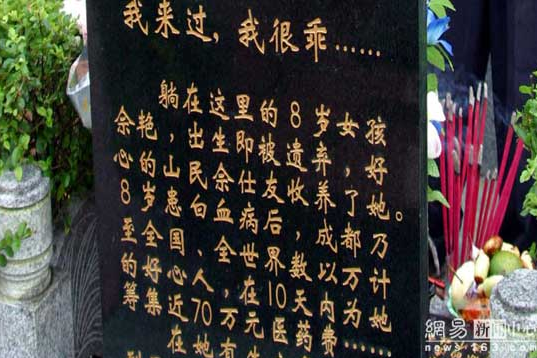 我来过,我很乖……
躺在这里的8岁女孩
余艳,出生即被遗弃,好
心的山民余仕友收养了她。
8岁患白血病后,成都乃
至全国、全世界数以万计
的好心人,在10天内为她
筹集近70万元医药费……
在她有
網易 新闻中心
news.163.com